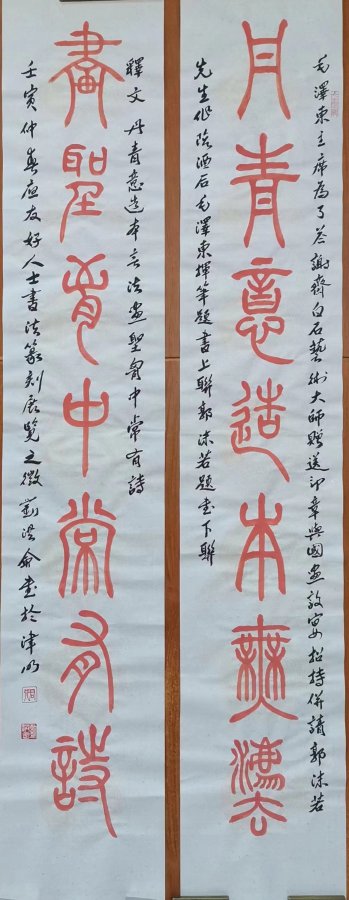 毛澤東主席為了答謝齊白石藝術大師贈送印章與國畫設宴招待併請郭沫若
丹青意造本無灋
先生作陪酒后毛澤東揮筆題書上聯郭沫若題書下聯
釋文 丹青意造本无法画聖胷中常有詩
畫聖胷中常有詩
壬寅仲春應友好人士書法篆刻展覽之徵 劉洪書於津